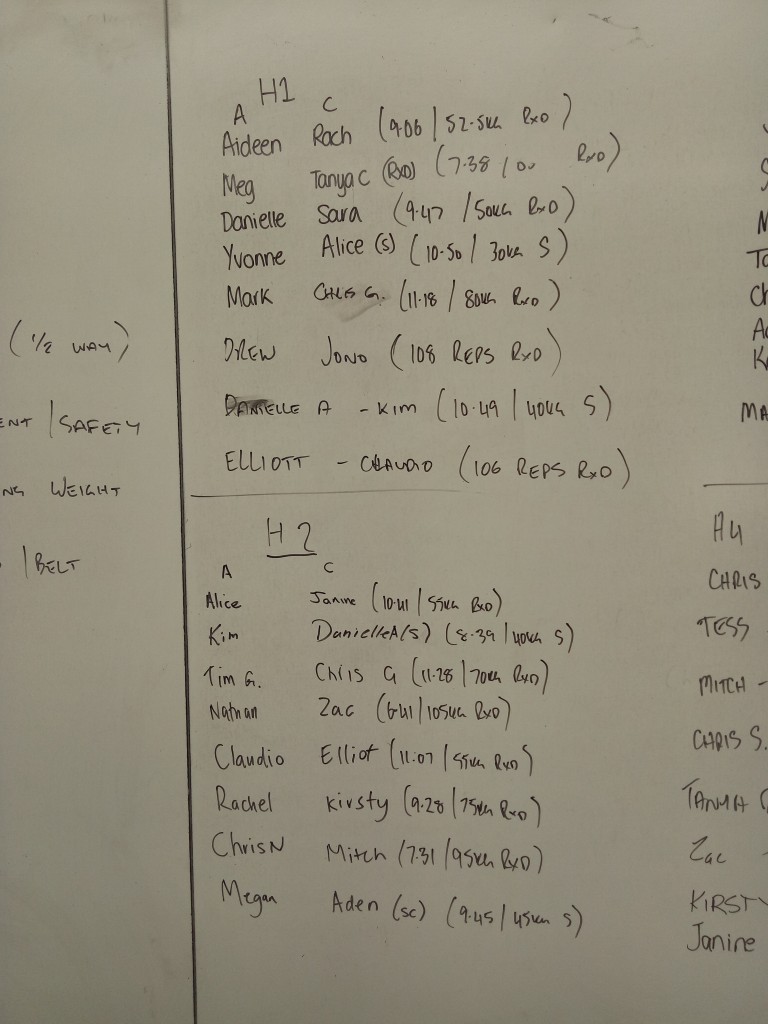 (1/2 WAY)
ENT / SAFETY
NG WEIGHT
/ BELT
H1
A C
Aideen Rach (9.06 / 52.5KG RxD)
Meg Tanya C (RxD) (7.38 / RxD)
Danielle Sara (9.47 / 50KG RxD)
Yvonne Alice (s) (10.50 / 30KG S)
Mark CHRIS G. (11.18 / 80KG RxD)
DREW JONO (108 REPS RxD)
DANIELLE A - KIM (10.49 / 40KG S)
ELLIOTT - CLAUDIO (106 REPS RxD)
H2
A C
Alice Janine (10.41 / 55KG RxD)
Kim DanielleA(s) (8.39 / 40KG S)
Tim G. Chris G (11.28 / 70KG RxD)
Nathan Zac (6.41 / 105KG RxD)
Claudio Elliot (11.07 / 55KG RxD)
Rachel Kirsty (9.28 / 75KG RxD)
ChrisN Mitch (7.31 / 95KG RxD)
Megan Aden (sc) (9.45 / 45KG S)
M
To
Ch
A
K
MA
H4
CHRIS
TESS
MITCH -
CHRIS S.
TANYA
Zac
KIRSTY
Janine